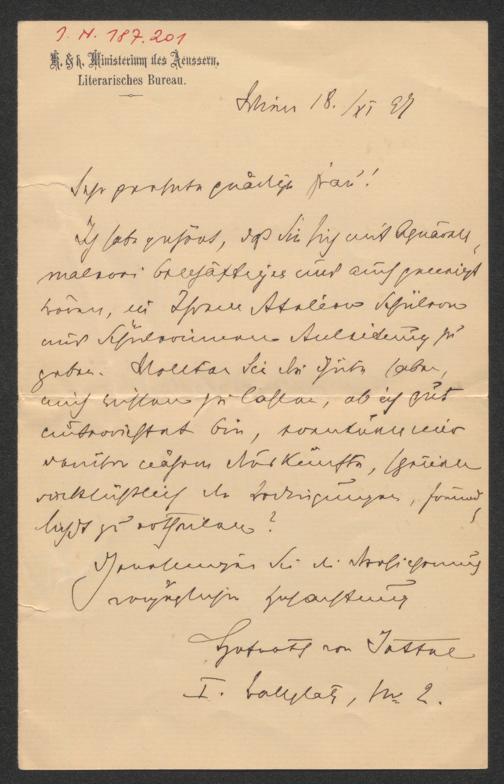 J. N. 187.201
K. & k. Ministerium des Aeussern.
Literarisches Bureau.
Wien 18./XI 97
Sehr geehrte gnädige Frau!
Ich habe gehört, daß Sie sich mit Aquarell-
malerei beschäftigen und auch geneigt
wären, in Ihrem Atelier Schülern
und Schülerinnen Anleitung zu
geben. Wollten Sie die Güte haben,
mich wissen zu lassen, ob ich gut
unterrichtet bin, eventuell mir
darüber nähere Auskünfte,
der Bedingungen, freund-
lichst zu ertheilen?
Genehmigen Sie die Versicherung
vorzüglicher Hochachtung
Hofrath von
I. Ballplatz, No 2.